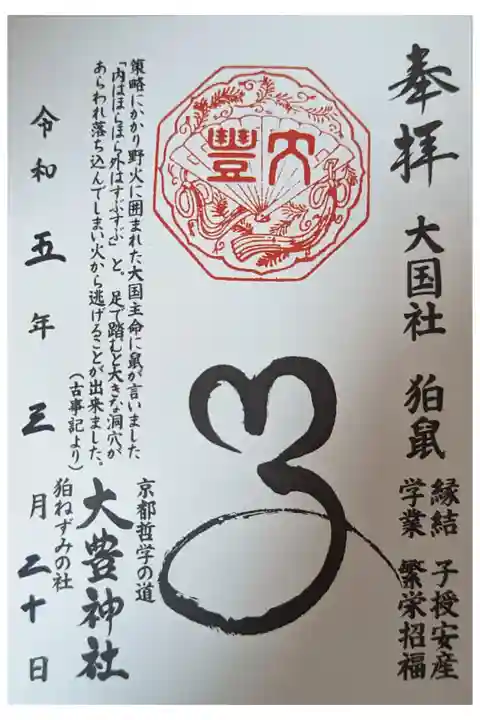 奉拝
大国社　狛鼠
縁結　子授安産
学業　繁栄招福
大豊
策略にかかり野火に囲まれた大国主命に鼠が言いました
「内はほらほら外はすぶすぶ」と。足で踏むと大きな洞穴が
あらわれ落ち込んでしまい火から逃げることが出来ました。
（古事記より）
京都哲学の道
大豊神社
狛ねずみの社
令和五年三月二十日